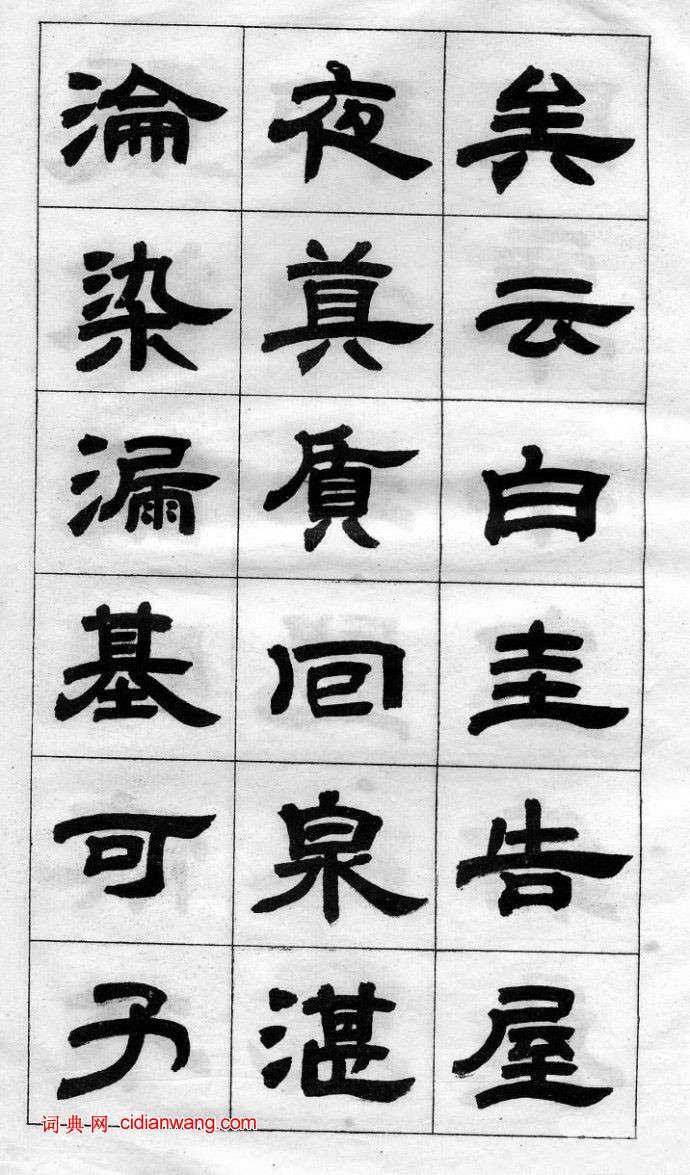 矣云白圭告屋
夜真質回泉湛
淪染漏基可
词典网 cidianwang.com